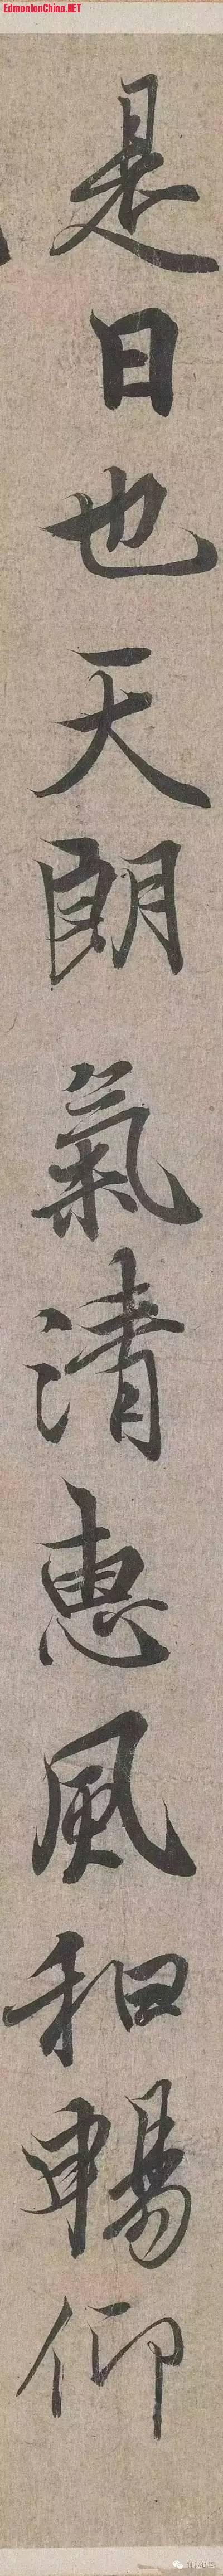 EdmontonChina.NET
是日也天朗氣清惠風和暢仰